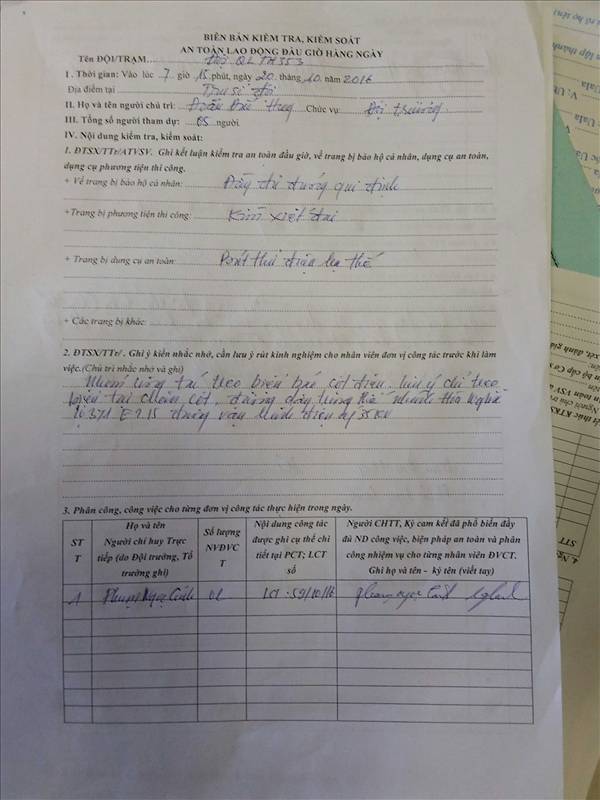 BIÊN BẢN KIỂM TRA, KIỂM SOÁT
AN TOÀN LAO ĐỘNG ĐẦU GIỜ HÀNG NGÀY
Tên ĐỘI/TRẠM: Đội QLTH 353
I. Thời gian: Vào lúc 7 giờ 15 phút, ngày 20 tháng 10 năm 2016
Địa điểm tại Trụ sở đội
II. Họ và tên người chủ trì: Đoàn Hung Chức vụ: Đội trưởng
III. Tổng số người tham dự: 05 người
IV. Nội dung kiểm tra, kiểm soát:
1. ĐTSX/TTr/ATVSV. Ghi kết luận kiểm tra an toàn đầu giờ, về trang bị bảo hộ cá nhân, dụng cụ an toàn,
dụng cụ phương tiện thi công.
+ Về trang bị bảo hộ cá nhân: Đầy đủ đúng qui định
+Trang bị phương tiện thi công: Kìm xiết đai
+ Trang bị dụng cụ an toàn: Bút thử điện hạ thế
+ Các trang bị khác:
2. ĐTSX/TTr/. Ghi ý kiến nhắc nhở, cần lưu ý rút kinh nghiệm cho nhân viên đơn vị công tác trước khi làm
việc.(Chủ trì nhắc nhở và ghi)
Nhóm công tác treo biển báo cột điện, lưu ý chỉ treo
biển tại chân cột, đường dây trung thế nhánh Nghĩa
lộ 371 E9.15 đang vận hành điện áp 35KV
3. Phân công, công việc cho từng đơn vị công tác thực hiện trong ngày.
ST
T
Họ và tên
Người chỉ huy Trực
tiếp (do Đội trưởng, Tổ
trưởng ghi)
Số lượng
NVĐVC
T
Nội dung công tác
được ghi cụ thể chi
tiết tại PCT; LCT
số
Người CHTT, Ký cam kết đã phổ biến đầy
đủ ND công việc, biện pháp an toàn và phân
công nhiệm vụ cho từng nhân viên ĐVCT.
Ghi họ và tên - ký tên (viết tay)
1 Phạm Ngọc Cảnh 02 LCT: 59/10/16 Phạm Ngọc Cảnh